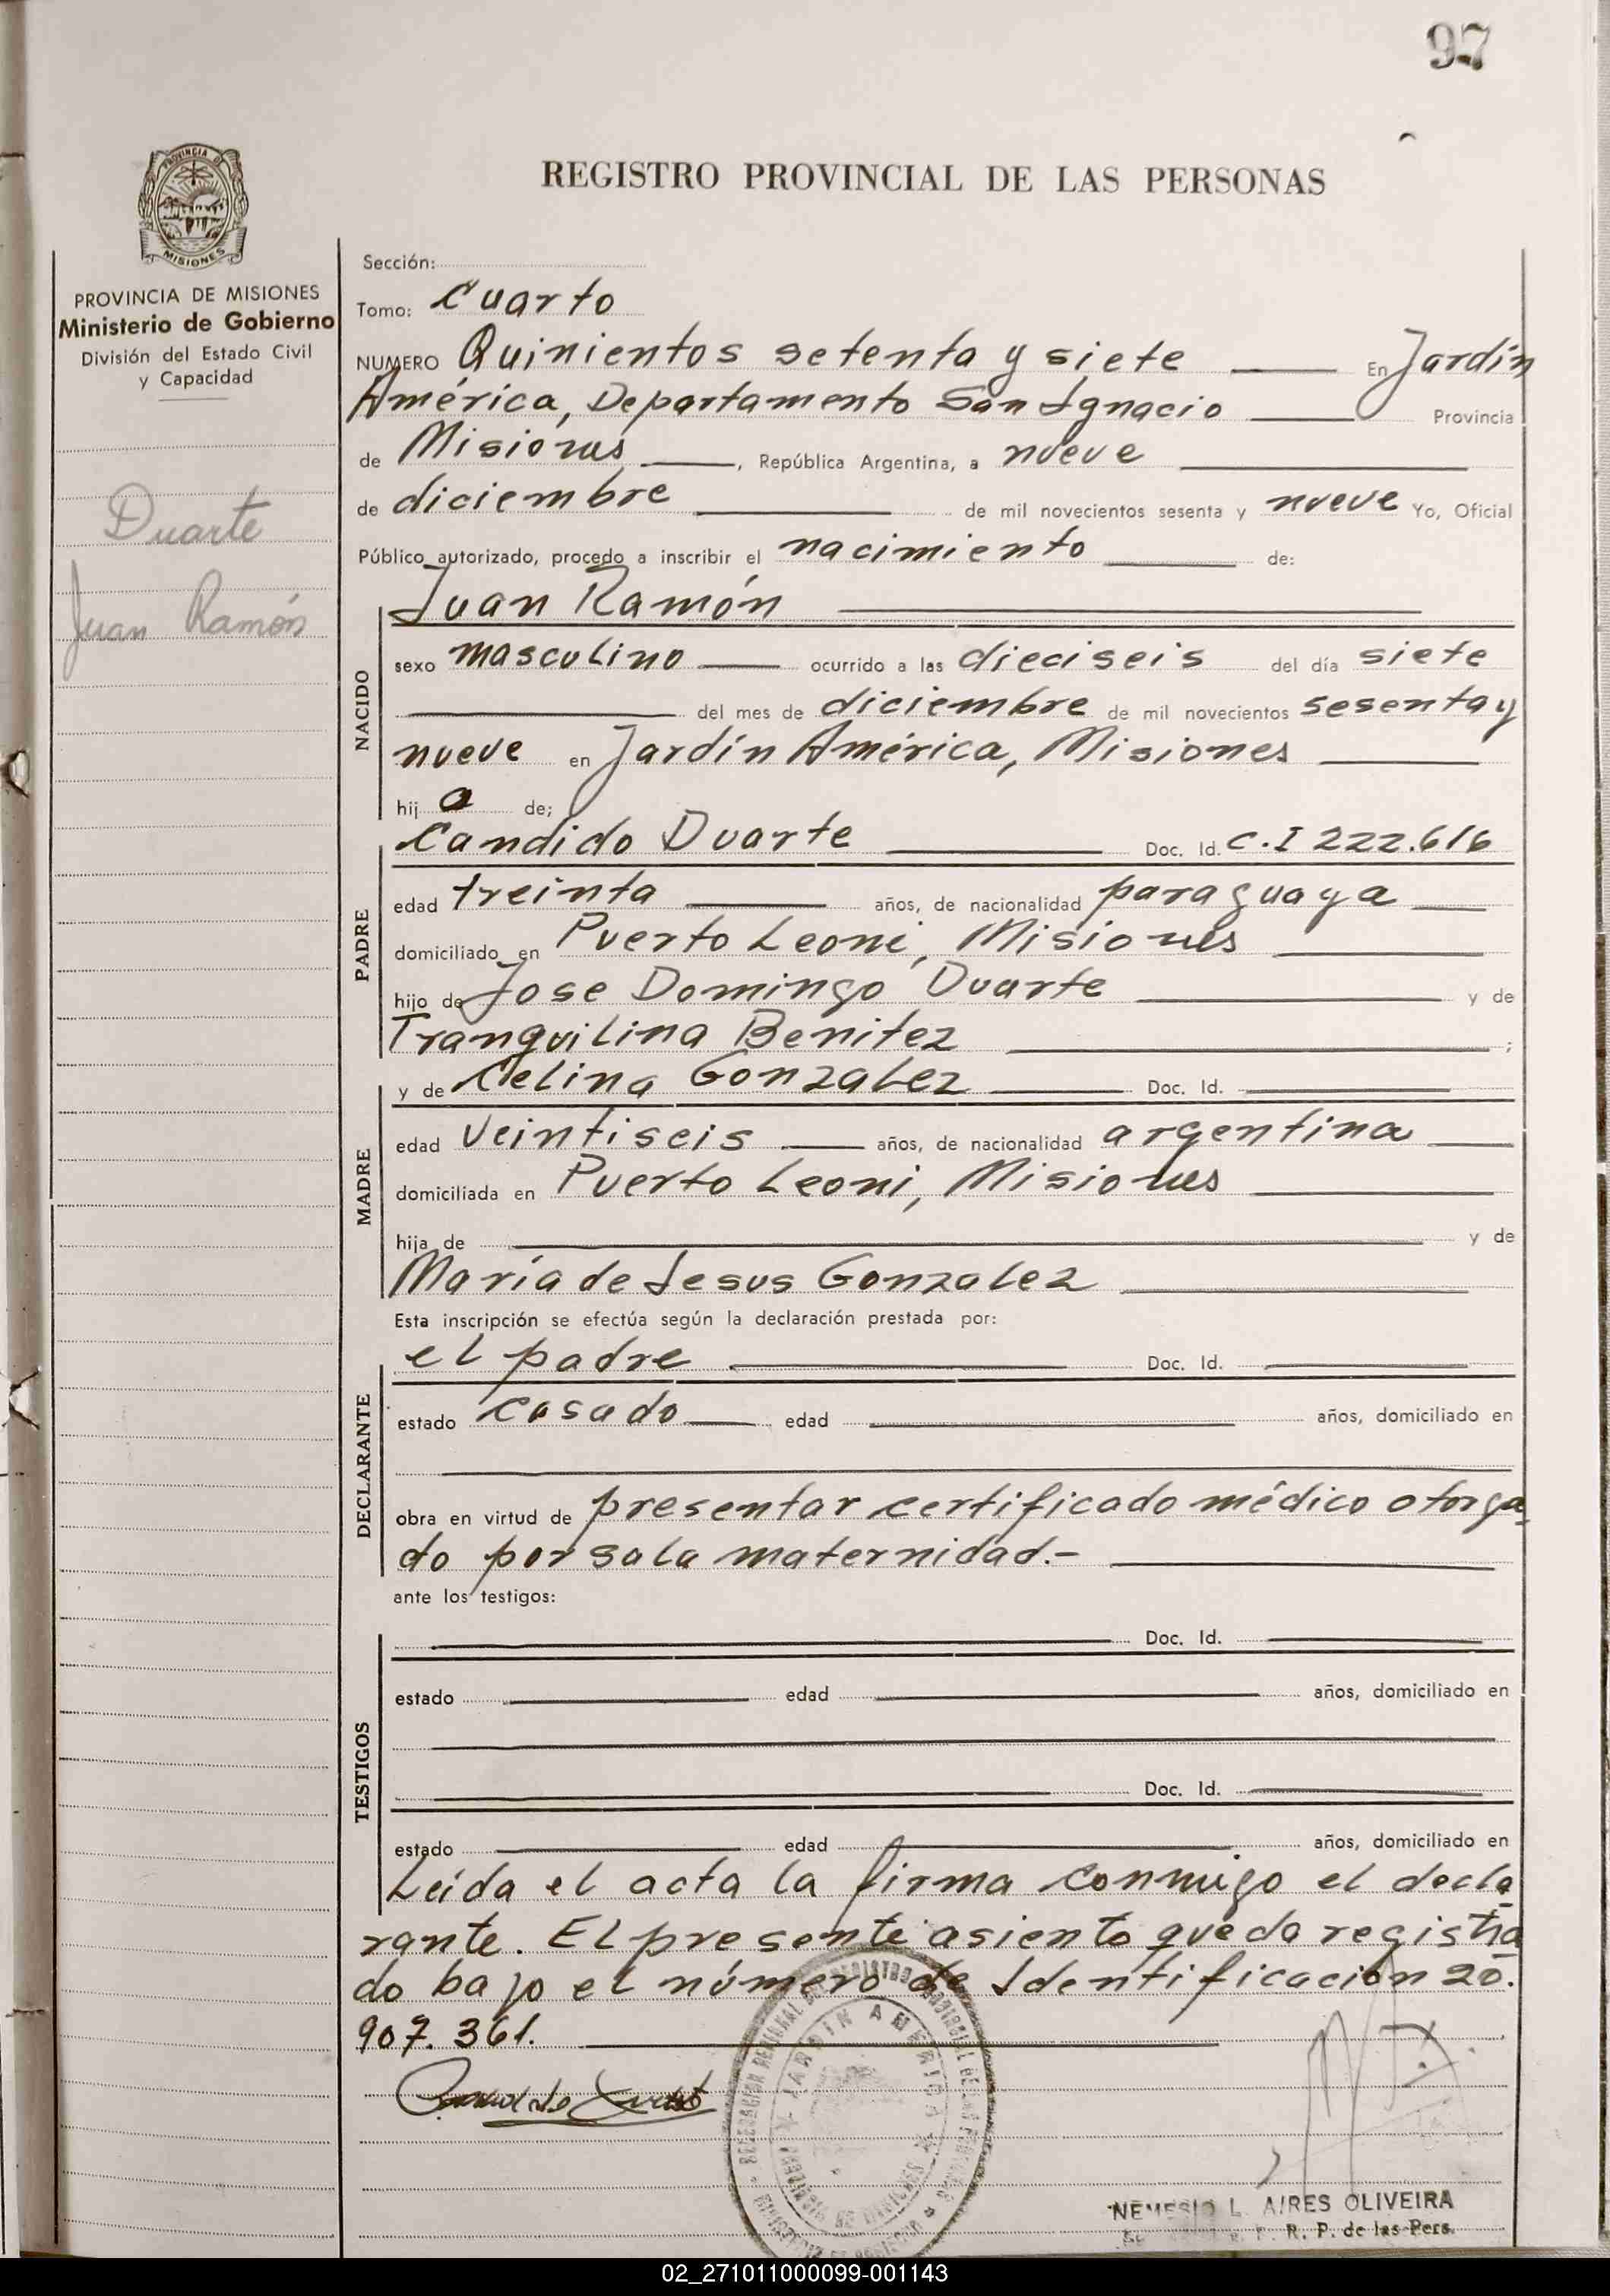 97
PROVINCIA DE
MISIONES
REGISTRO PROVINCIAL DE LAS PERSONAS
PROVINCIA DE MISIONES
Ministerio de Gobierno
División del Estado Civil
y Capacidad
Duarte
Juan Ramón
Sección:
Tomo: Cuarto
NUMERO Quinientos setenta y siete En Jardín
América, Departamento San Ignacio Provincia
de Misiones, República Argentina, a nueve
de diciembre de mil novecientos sesenta y nueve Yo, Oficial
Público autorizado, procedo a inscribir el nacimiento de:
NACIDO
Juan Ramón
sexo masculino ocurrido a las dieciseis del día siete
del mes de diciembre de mil novecientos sesenta y
nueve en Jardín América, Misiones
hij o de;
PADRE
Candido Duarte Doc. Id. C.I 222.616
edad treinta años, de nacionalidad paraguaya
domiciliado en Puerto Leoni, Misiones
hijo de Jose Domingo Duarte y de
Tranquilina Benitez ;
MADRE
y de Celina Gonzalez Doc. Id.
edad veintiseis años, de nacionalidad argentina
domiciliada en Puerto Leoni, Misiones
hija de y de
María de Jesus Gonzalez
Esta inscripción se efectúa según la declaración prestada por:
DECLARANTE
el padre Doc. Id.
estado casado edad años, domiciliado en
obra en virtud de presentar certificado médico otorga
do por sala maternidad.-
ante los testigos:
TESTIGOS
Doc. Id.
estado edad años, domiciliado en
Doc. Id.
estado edad años, domiciliado en
Leída el acta la firma conmigo el decla
rante. El presente asiento queda registra
do bajo el número de Identificación 20.
907.361.
JARDIN AMERICA
PROVINCIA DE MISIONES
NEMESIO L. AIRES OLIVEIRA
R. P. de las Pers.
02_271011000099-001143